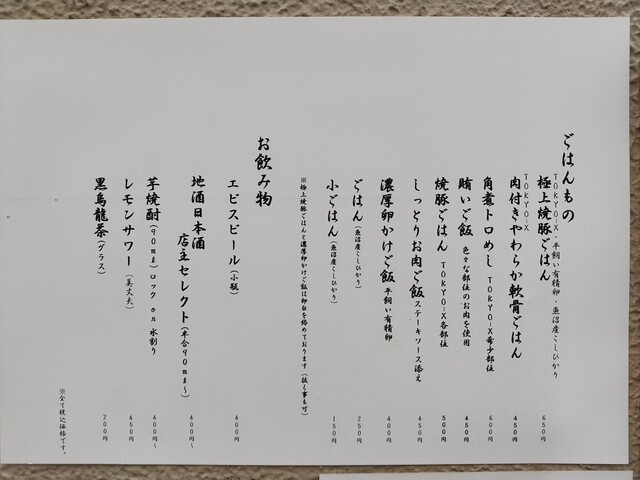 ごはんもの
TOKYO-X・平飼い有精卵・魚沼産こしひかり
極上焼豚ごはん 650円
TOKYO-X
肉付きやわらか軟骨ごはん 450円
角煮トロめし TOKYO-X希少部位 600円
賄いご飯 色々な部位のお肉を使用 450円
焼豚ごはん TOKYO-X各部位 500円
しっとりお肉ご飯 ステーキソース添え 450円
濃厚卵かけご飯 平飼い有精卵 400円
ごはん(魚沼産こしひかり) 250円
小ごはん(魚沼産こしひかり) 150円
※極上焼豚ごはんと濃厚卵かけご飯は卵白を絡めております(抜く事も可)
お飲み物
エビスビール(小瓶) 400円
地酒日本酒
店主セレクト(半合90ml〜) 400円〜
芋焼酎(90ml)ロック on 水割り 400円〜
レモンサワー(美丈夫) 450円
黒烏龍茶(グラス) 200円
※全て税込価格です。